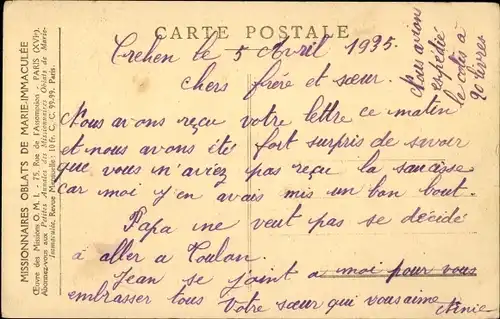 MISSIONNAIRES OBLATS DE MARIE-IMMACULÉE
Œuvre des Missions O. M. I. - 75, Rue de l'Assomption - PARIS (XVIe)
Abonnez-vous aux Petites Annales des Missionnaires Oblats de Marie-
Immaculée, Revue Mensuelle : 10 fr. C. C. 90-99. Paris.
CARTE POSTALE
Crehen le 5 Avril 1935.
chers frère et sœur.
Nous avons reçu votre lettre ce matin
et nous avons été fort surpris de savoir
que vous n'aviez pas reçu la saucisse
car moi y'en avais mis un bon bout.
Papa ne veut pas se décidé
à aller a Toulon.
Jean se joint a moi pour vous
embrasser tous
Votre sœur qui vous aime
Ninie
Nous avion
expédié
le colis à
90 livres